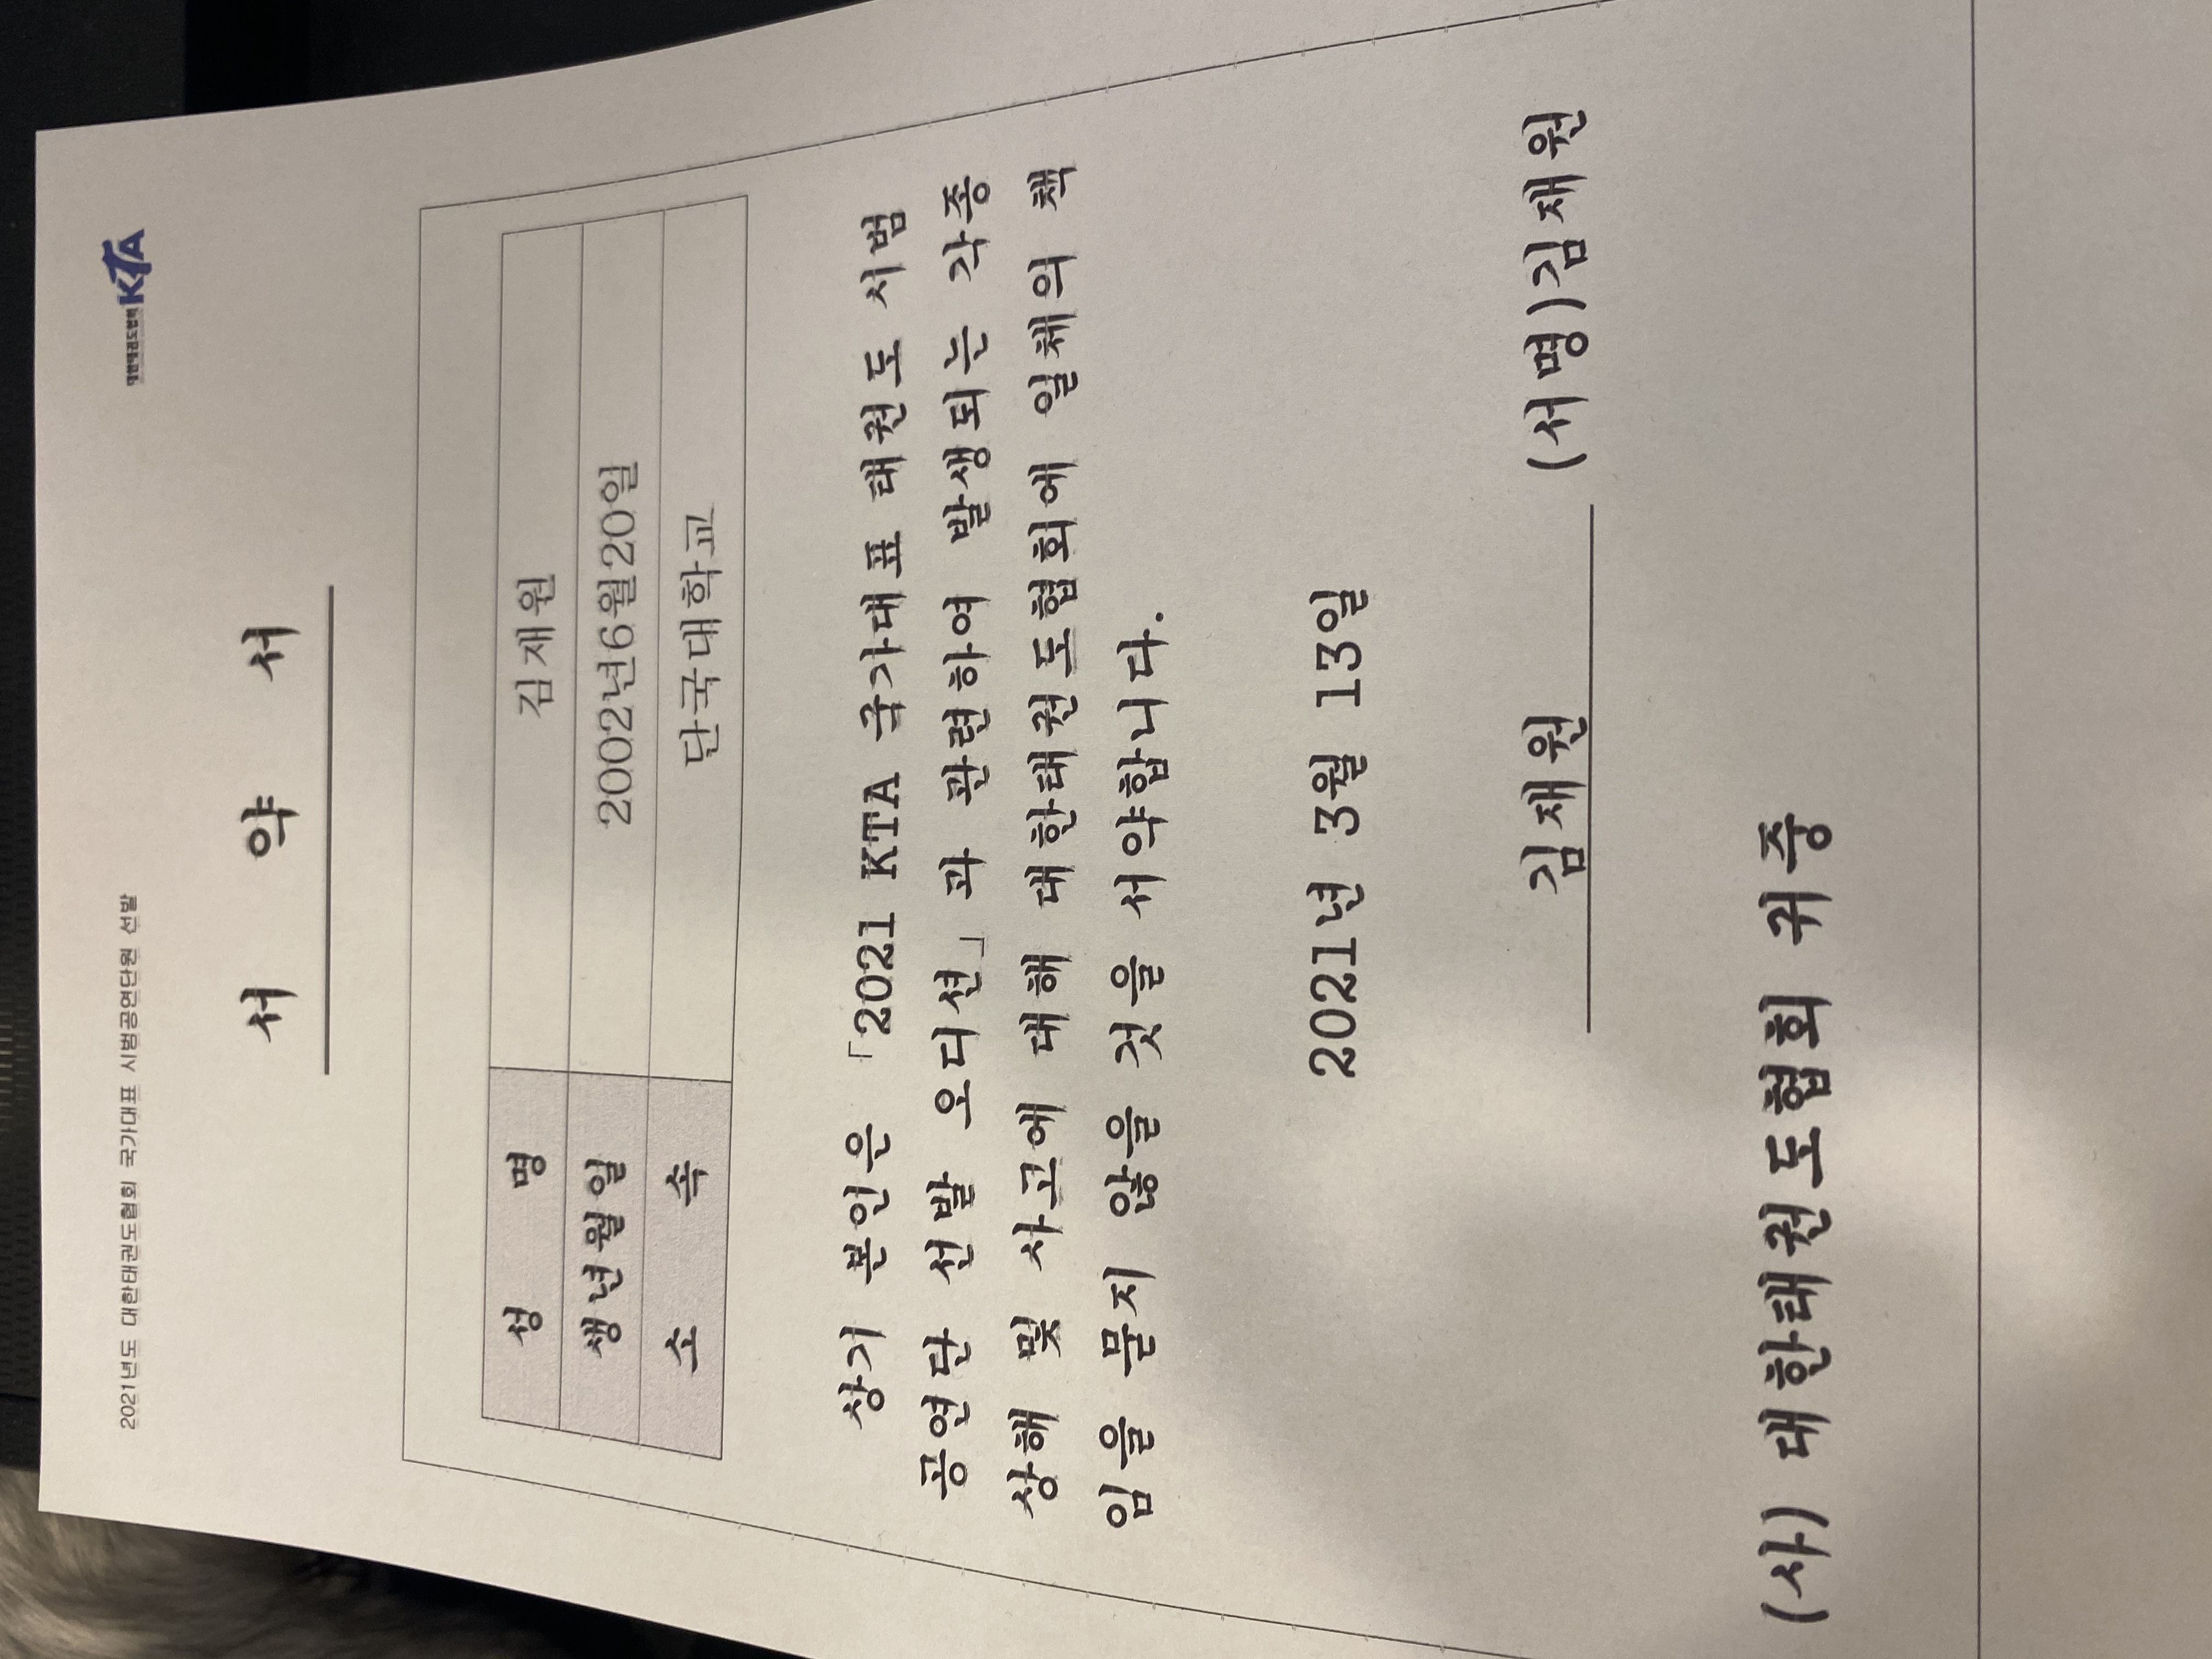 2021년도 대한태권도협회 국가대표 시범공연단원 선발
대한태권도협회 KTA
서 약 서
성 명 김재원
생년월일 2002년6월20일
소 속 단국대학교
상기 본인은 「2021 KTA 국가대표 태권도 시범
공연단 선발 오디션」과 관련하여 발생되는 각종
상해 및 사고에 대해 대한태권도협회에 일체의 책
임을 묻지 않을 것을 서약합니다.
2021년 3월 13일
김재원 (서명)김재원
(사) 대한태권도협회 귀중